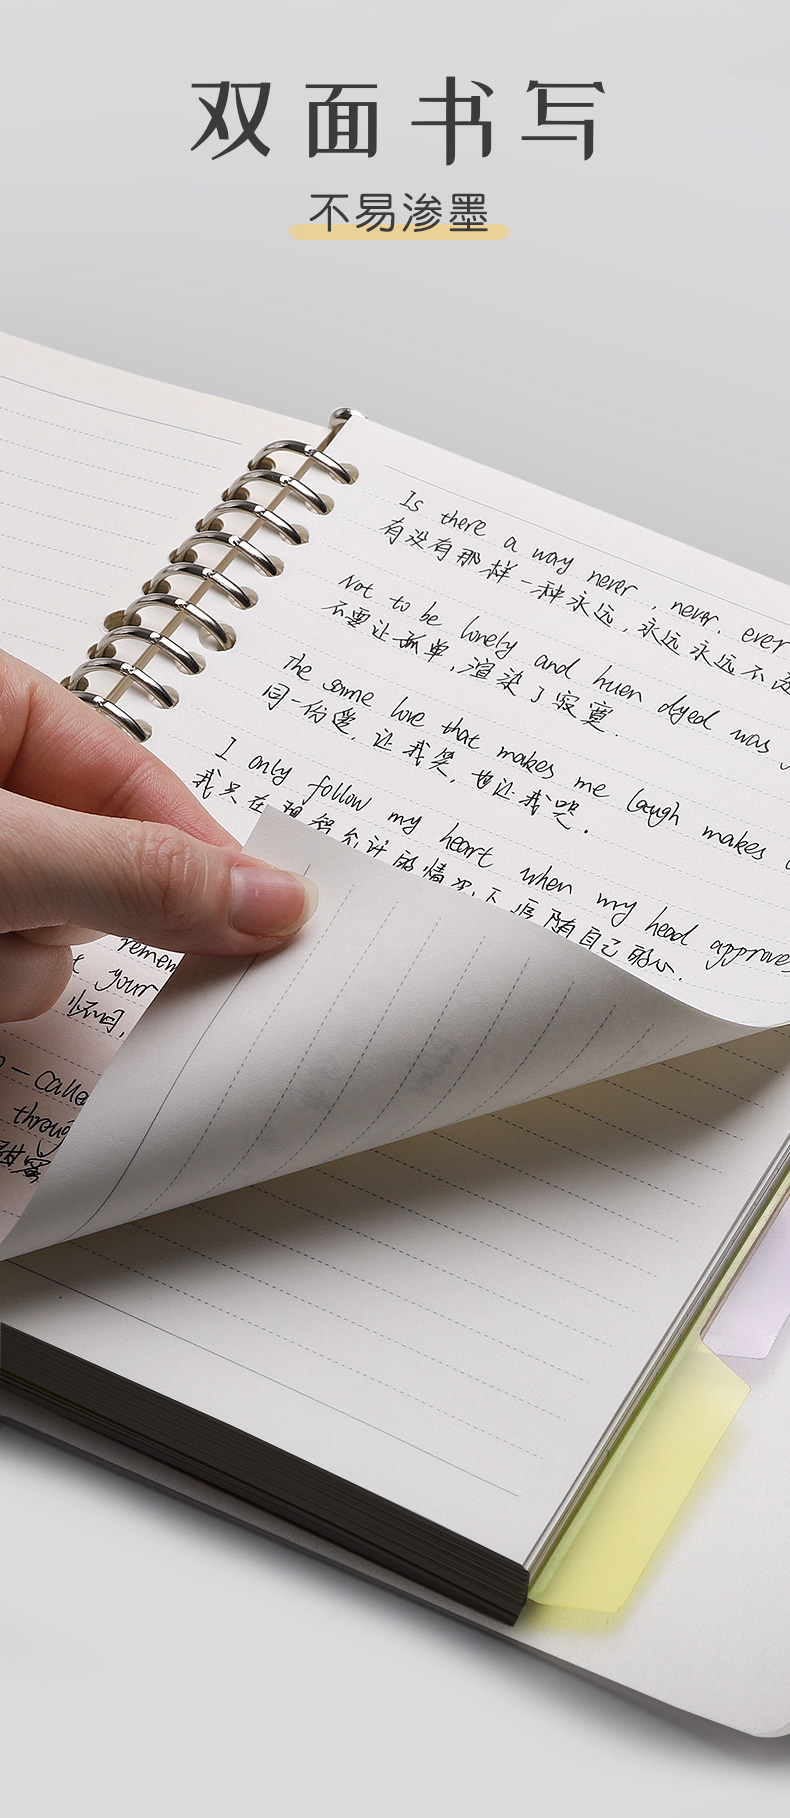 双面书写
不易渗墨
Is there a way never , never. ever
有没有那样一种永远,永远永远不
Not to be lonely and huen dyed was
不要让孤单,渲染了寂寞.
The same love that makes me laugh makes
同一份爱,让我笑,也让我哭.
I only follow my heart when my head approves
我只在理智允许的情况下追随自己的心.
your
through
甜蜜